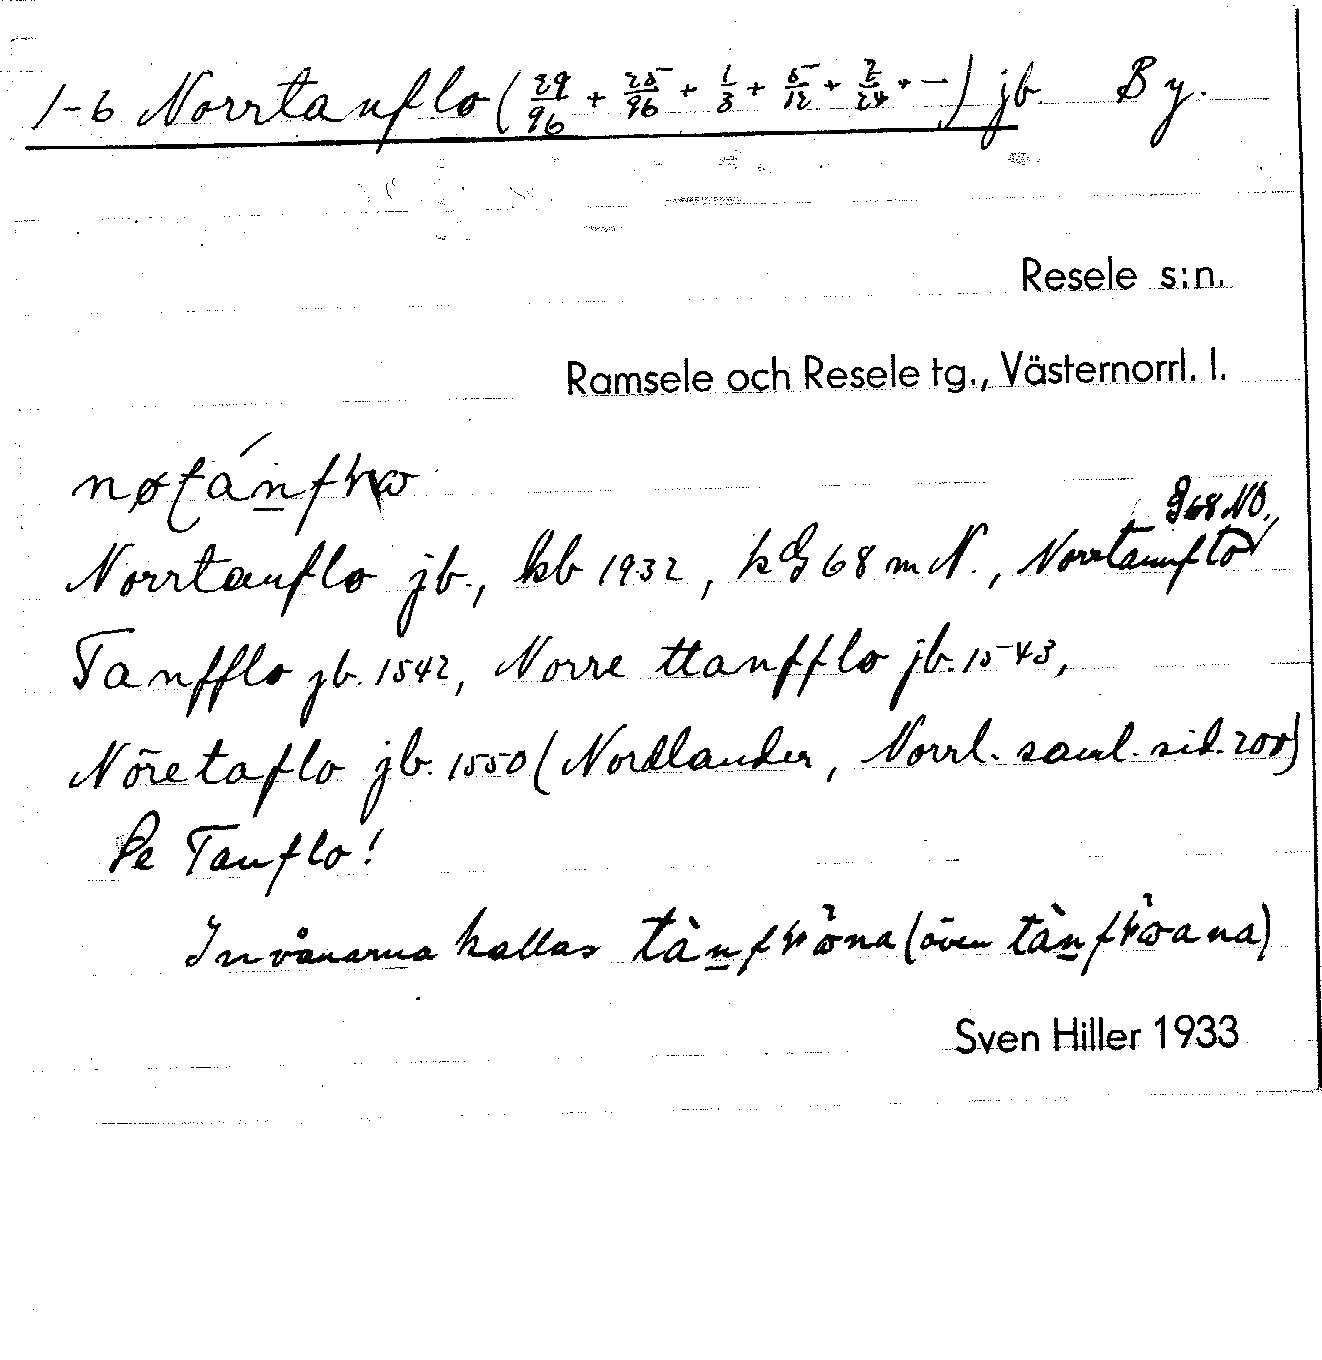 1-6 Norrtanflo (29/96 + 25/96 + 1/3 + 5/12 + 2/24 + —) jb. By.
Resele s:n.
Ramsele och Resele tg., Västernorrl. l.
G68 NO.,
Norrtanflo jb., kb 1932, kG 68 m N., Norrtannflo
Tanfflo jb. 1542, Norre ttanfflo jb. 1543,
Nöretaflo jb. 1550 (Nordlander, Norrl. saml. sid. 200)
Se Tanflo!
Invånarna kallas (även
Sven Hiller 1933